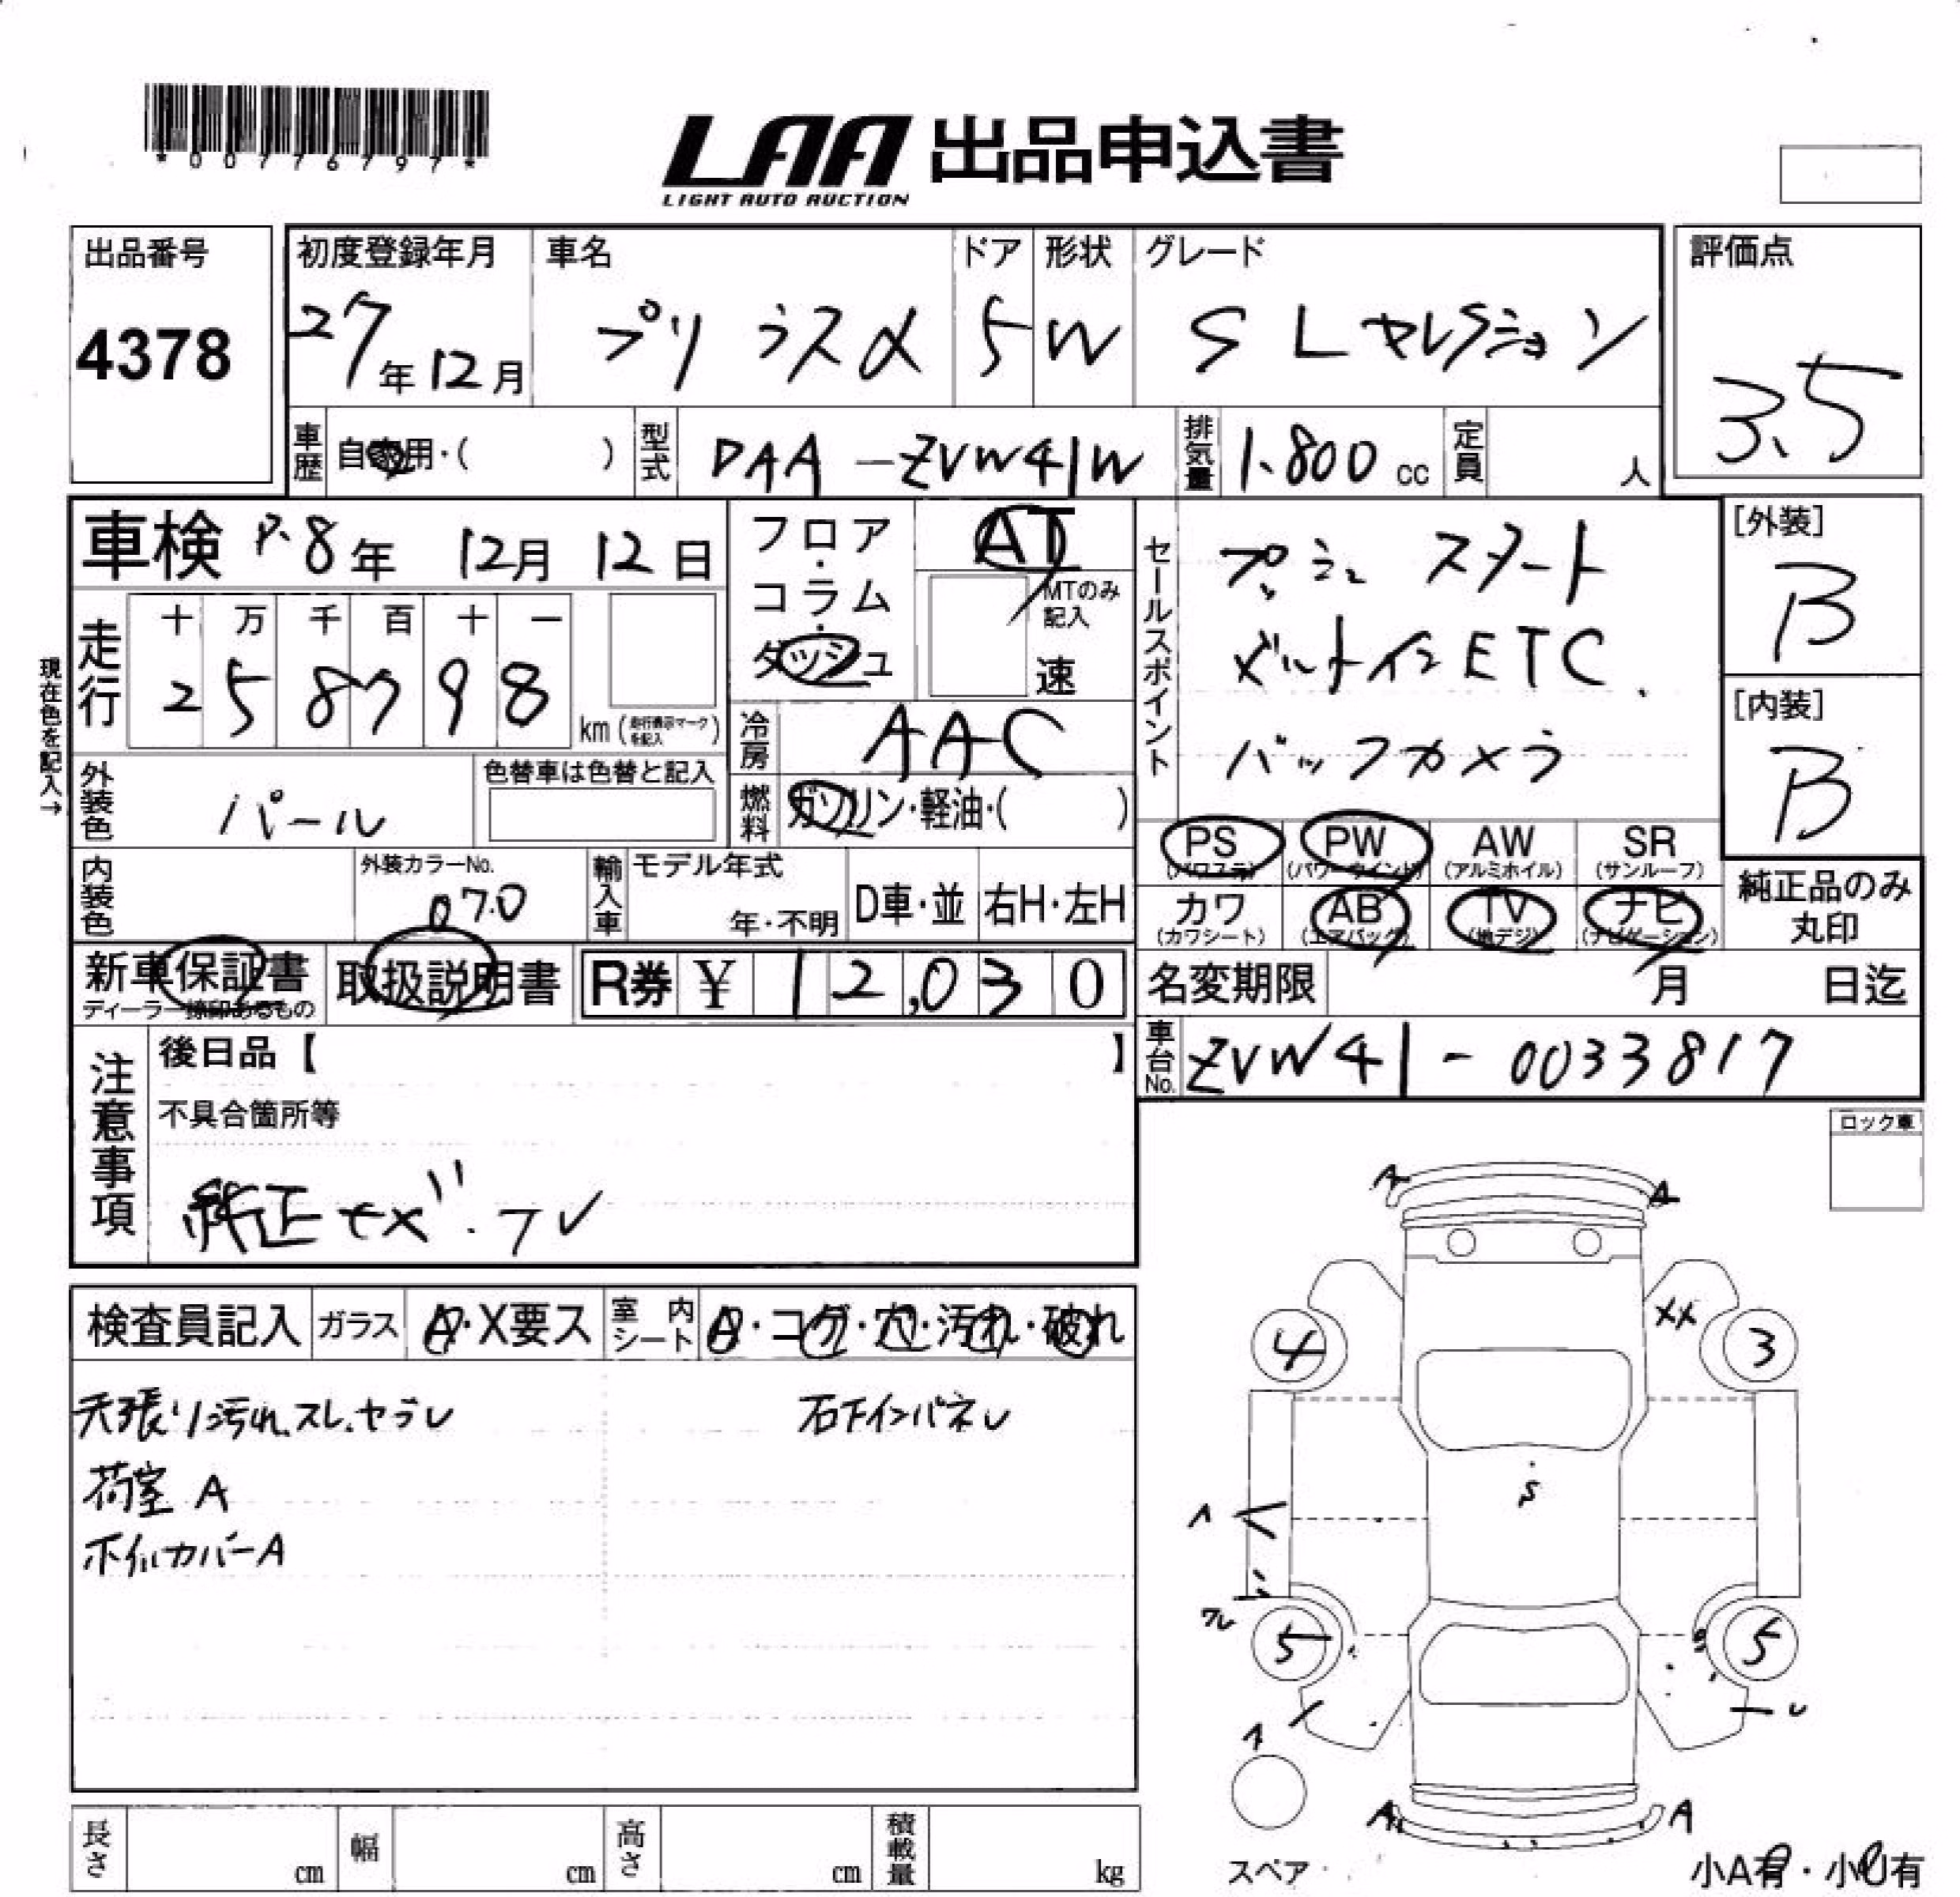 *00776797*
LAA 出品申込書
LIGHT AUTO AUCTION
出品番号
4378
初度登録年月
27年12月
車名
プリウスα
ドア
5
形状
W
グレード
S Lセレクション
評価点
3.5
車歴
自家用・( )
型式
DAA-ZVW41W
排気量
1.800 cc
定員
人
車検 R.8年 12月 12日
フロア・コラム・ダッシュ
AT
MTのみ記入
速
セールスポイント
プッシュスタート
ビルトインETC.
バックカメラ
[外装]
B
[内装]
B
現在色を記入→
走行
十 万 千 百 十 一
2 5 8 7 9 8
km (走行表示マークを記入)
冷房
AAC
燃料
ガソリン・軽油・( )
外装色
パール
色替車は色替と記入
内装色
外装カラーNo.
070
輸入車
モデル年式
年・不明
D車・並
右H・左H
PS (パワステ)
PW (パワーウインド)
AW (アルミホイル)
SR (サンルーフ)
カワ (カワシート)
AB (エアバッグ)
TV (地デジ)
ナビ (ナビゲーション)
純正品のみ丸印
新車保証書
ディーラー捺印あるもの
取扱説明書
R券 ¥ 12,030
名変期限
月 日迄
車台No.
ZVW41-0033817
注意事項
後日品【 】
不具合箇所等
純正ナビ.TV
ロック車
検査員記入
ガラス
A・X要ス
室内シート
A・コゲ・穴・汚れ・破れ
天張り汚れ.スレ.
荷室 A
ホイルカバーA
A
A
XX
4
3
S
ワレ
5
5
A
A
スペア
小A有・小U有
長さ
cm
幅
cm
高さ
cm
積載量
kg